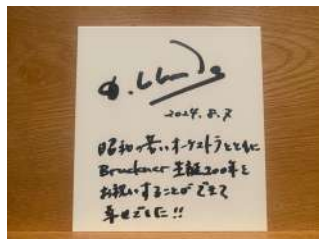 2024.8.7
昭和の若いオーケストラとともに
Bruckner 生誕200年を
お祝いすることができて
幸せでした!!